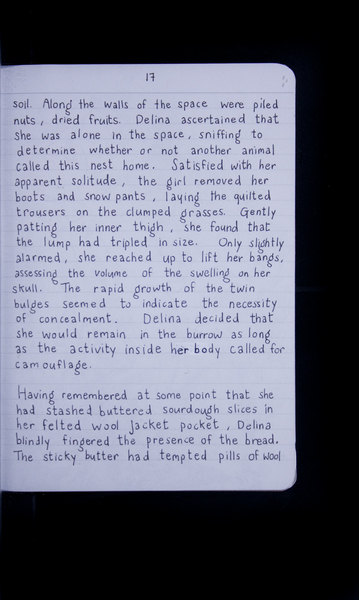 17
soil. Along the walls of the space were piled
nuts, dried fruits. Delina ascertained that
she was alone in the space, sniffing to
determine whether or not another animal
called this nest home. Satisfied with her
apparent solitude, the girl removed her
boots and snow pants, laying the quilted
trousers on the clumped grasses. Gently
patting her inner thigh, she found that
the lump had tripled in size. Only slightly
alarmed, she reached up to lift her bangs,
assessing the volume of the swelling on her
skull. The rapid growth of the twin
bulges seemed to indicate the necessity
of concealment. Delina decided that
she would remain in the burrow as long
as the activity inside her body called for
camouflage.
Having remembered at some point that she
had stashed buttered sourdough slices in
her felted wool jacket pocket, Delina
blindly fingered the presence of the bread.
The sticky butter had tempted pills of wool